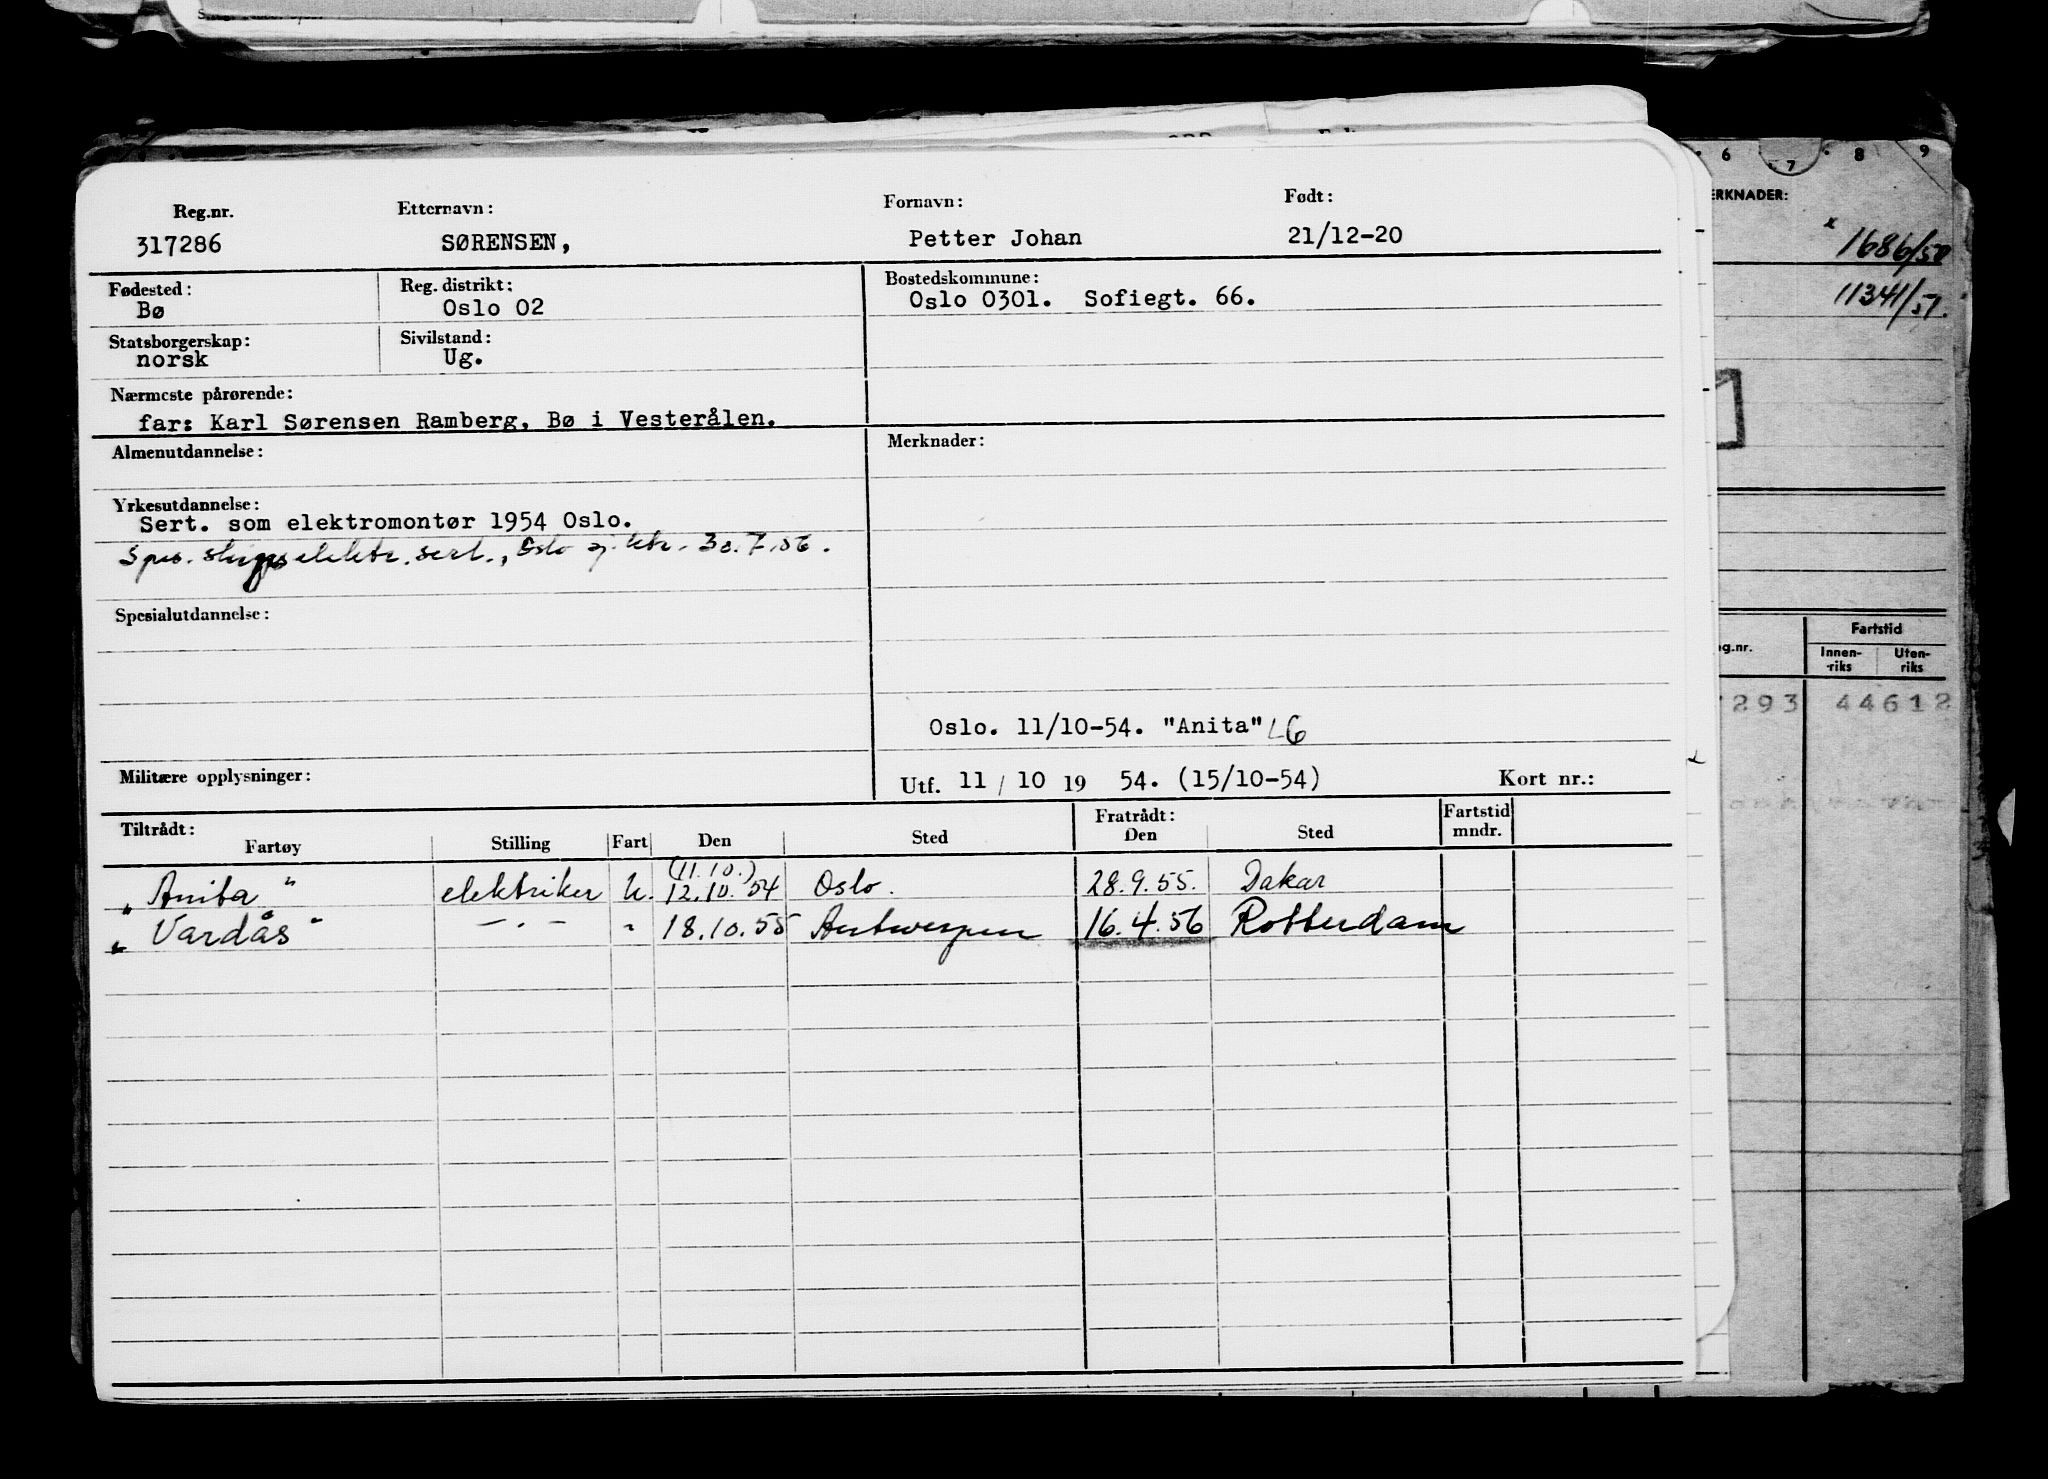 6 7 8 9
ERKNADER:
Reg.nr. Etternavn: Fornavn: Født:
317286 SØRENSEN, Petter Johan 21/12-20
1686/50
Fødested: Reg. distrikt: Bostedskommune:
Bø Oslo 02 Oslo 0301. Sofiegt. 66.
11341/51.
Statsborgerskap: Sivilstand:
norsk Ug.
Nærmeste pårørende:
far: Karl Sørensen Ramberg, Bø i Vesterålen.
Almenutdannelse: Merknader:
Yrkesutdannelse:
Sert. som elektromontør 1954 Oslo.
Spes. skipselektr. sert., Oslo sj.ktr. 30.7.56.
Spesialutdannelse:
g.nr. Fartstid
Innen-riks Uten-riks
293 44612
Oslo. 11/10-54. "Anita" LG
Militære opplysninger: Utf. 11 / 10 19 54. (15/10-54) Kort nr.:
Tiltrådt: Fratrådt: Fartstid
Fartøy Stilling Fart Den Sted Den Sted mndr.
(11.10.)
"Anita" elektriker U. 12.10.54 Oslo. 28.9.55. Dakar
"Vardås" —.— " 18.10.55 Antwerpen 16.4.56 Rotterdam